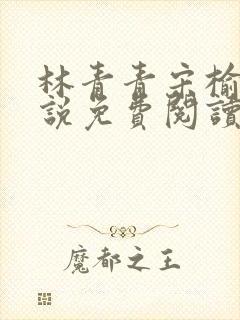 林青青宋榆
說免費閱讀
魔都之王